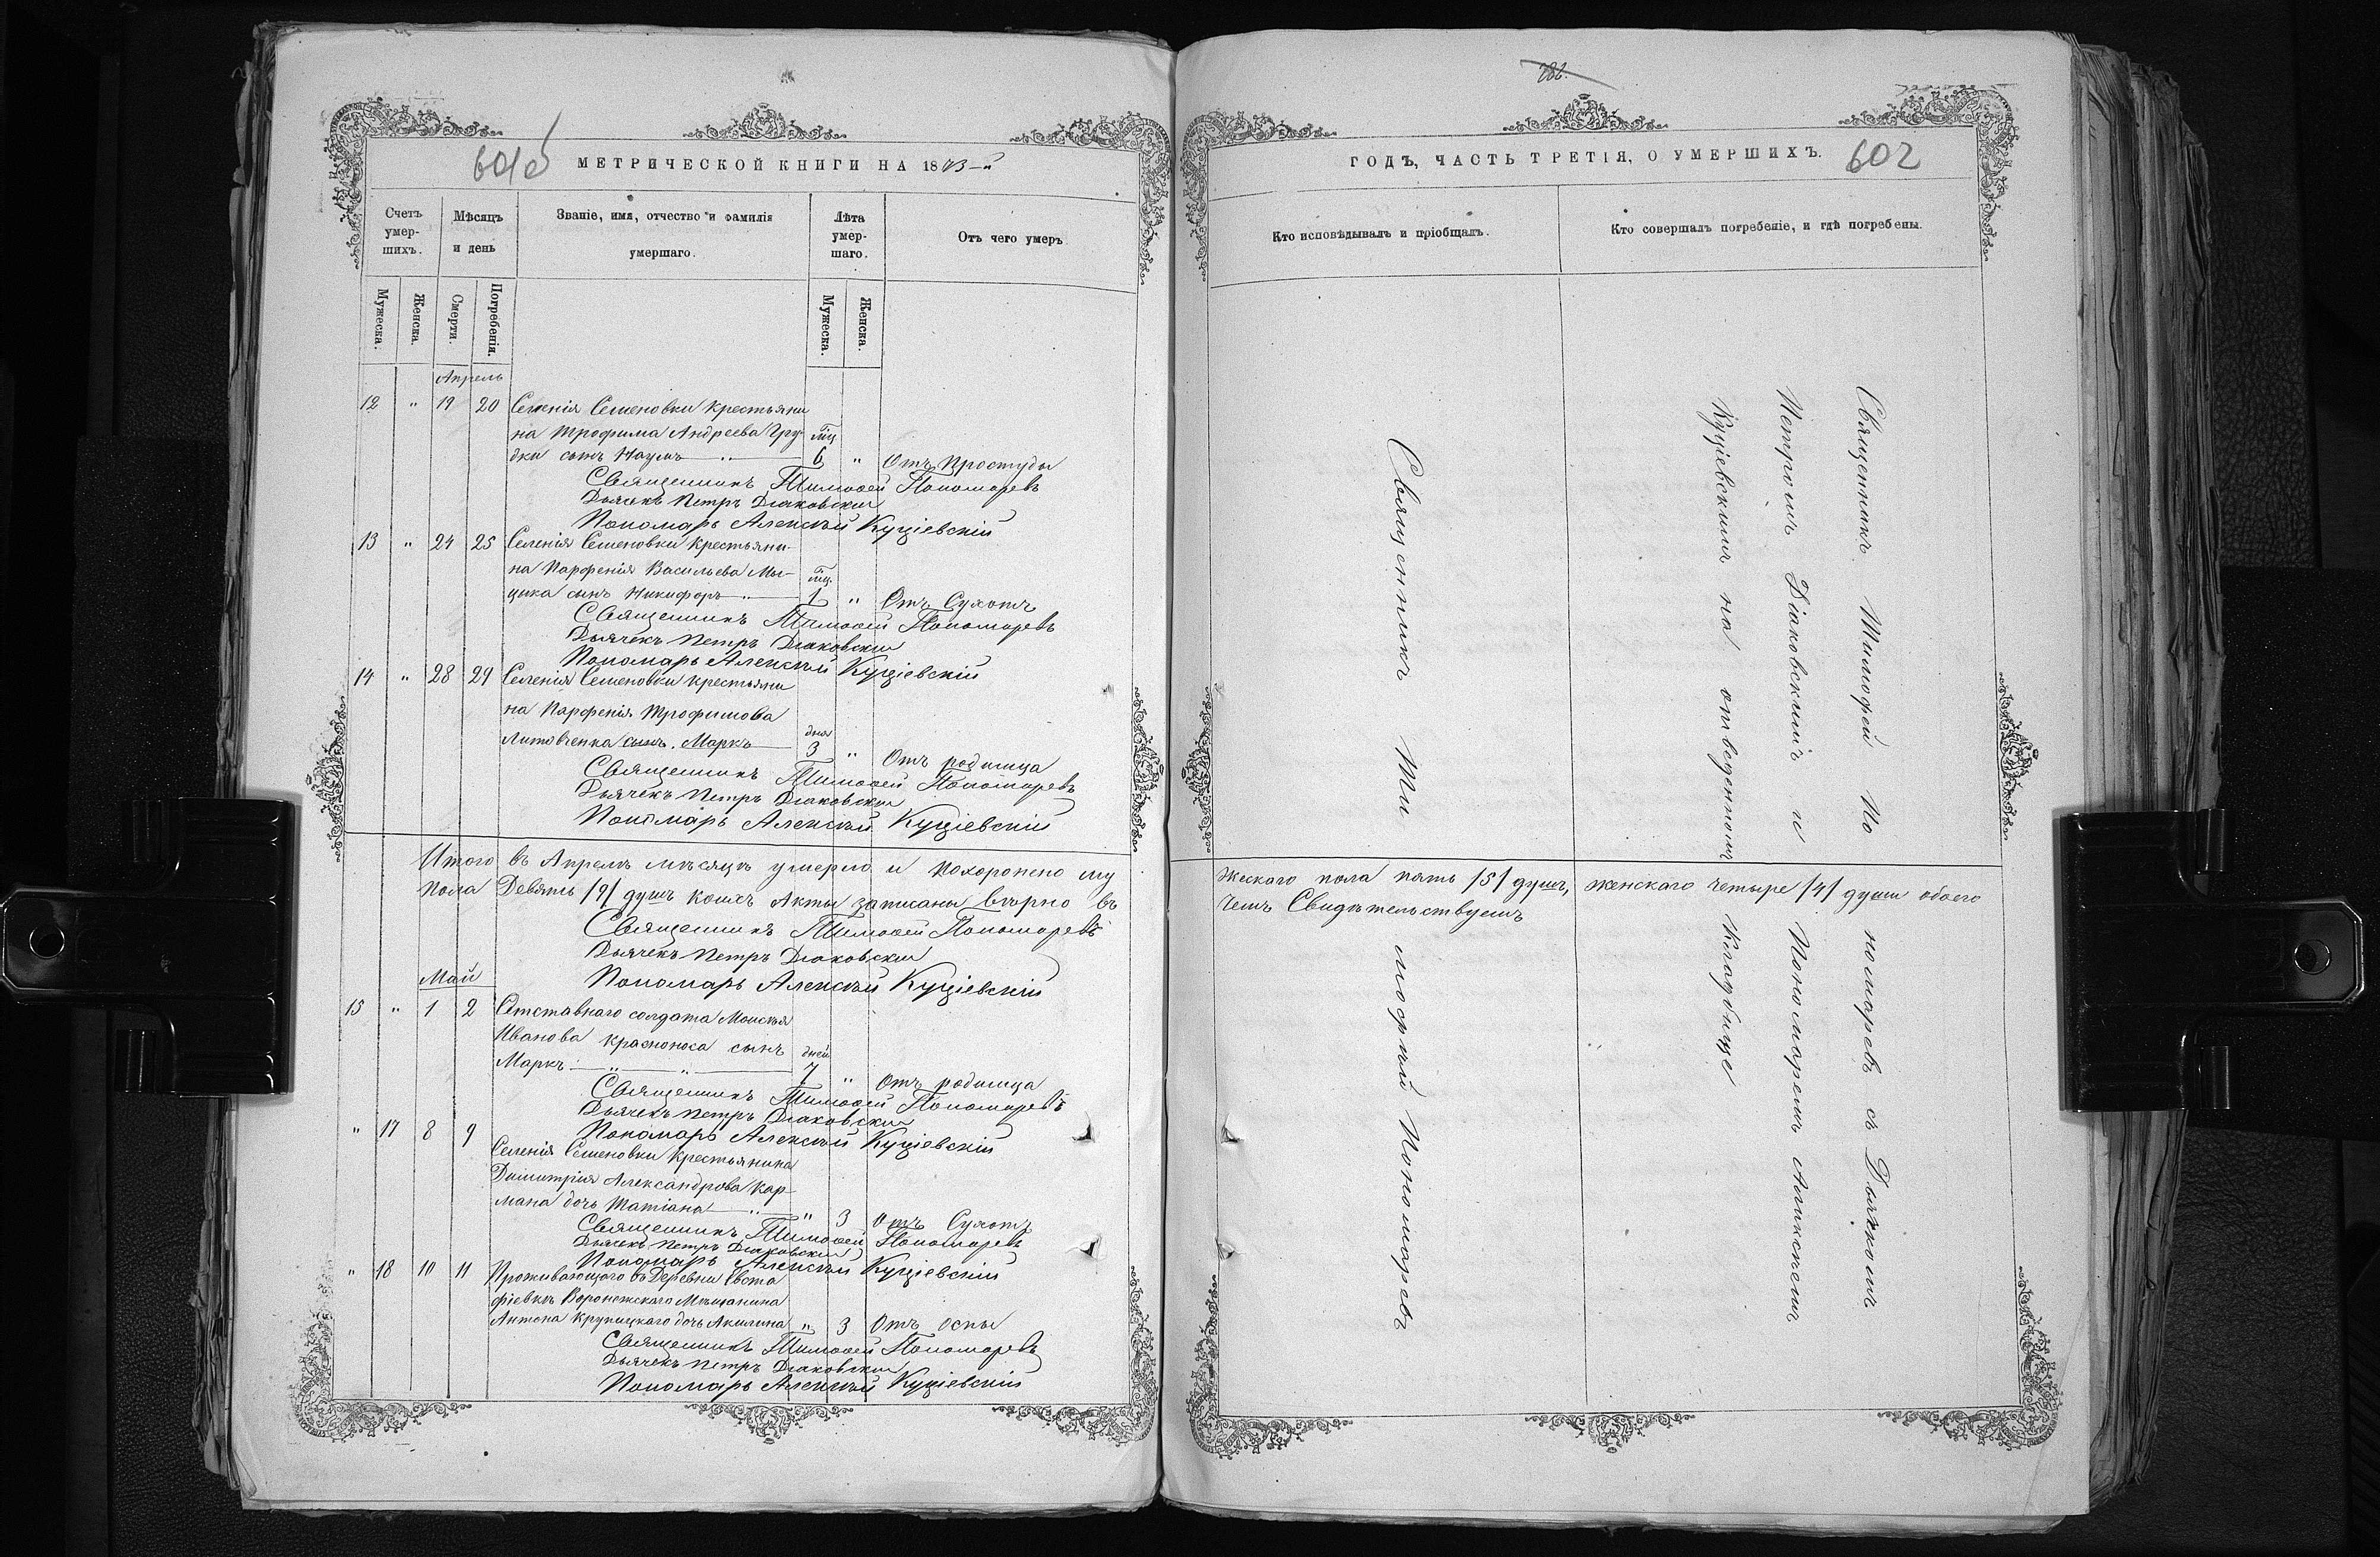 601об
МЕТРИЧЕСКОЙ КНИГИ НА 1873-й
Счетъ умер-шихъ.
Мѣсяцъ и день
Званіе, имя, отчество и фамилія умершаго.
Лѣта умер-шаго.
Отъ чего умеръ
Мужеска.
Женска.
Смерти.
Погребенія.
Мужеска.
Женска.
Апрель
12 " 19 20 Селенія Семеновки крестьяни
на Трофима Андреева Гру- мц
дки сынъ Наумъ 6 " Отъ простуды
Священникъ Тимофей Пономаревъ
Дьячекъ Петръ Діаковскій
Пономарь Алексѣй Куціевскій
13 " 24 25 Селенія Семеновки крестьяни-
на Парфенія Васильева Мы- мц.
цика сынъ Никифоръ 1 " Отъ Сухотъ
Священникъ Тимофей Пономаревъ
Дьячекъ Петръ Діаковскій
Пономарь Алексѣй Куціевскій
14 " 28 29 Селенія Семеновки крестьяни
на Парфенія Трофимова
Литовченка сынъ Маркъ дня 3 " Отъ родимца
Священникъ Тимофей Пономаревъ
Дьячекъ Петръ Діаковскій
Пономарь Алексѣй Куціевскій
Итого въ Апрелѣ мѣсяцѣ умерло и похоронено му
пола Девять /9/ душъ коихъ Акты записаны вѣрно въ
Священникъ Тимофей Пономаревъ
Дьячекъ Петръ Діаковскій
Пономарь Алексѣй Куціевскій
Май
15 " 1 2 Отставнаго солдата Моисея
Иванова Красноноса сынъ дней
Маркъ 7 " Отъ родимца
Священникъ Тимофей Пономаревъ
Дьячекъ Петръ Діаковскій
Пономарь Алексѣй Куціевскій
" 17 8 9 Селенія Семеновки Крестьянина
Димитрія Александрова Кар-
мана дочь Татіана " 3 Отъ Сухотъ
Священникъ Тимофей Пономаревъ
Дьячекъ Петръ Діаковскій
Пономарь Алексѣй Куціевскій
" 18 10 11 Проживающаго въ Деревни Евста
фіевкѣ Воронежскаго Мѣщанина
Антона Крупицкаго дочь Акилина " 3 Отъ оспы
Священникъ Тимофей Пономаревъ
Дьячекъ Петръ Діаковскій
Пономарь Алексѣй Куціевскій
ГОДЪ, ЧАСТЬ ТРЕТІЯ, О УМЕРШИХЪ.
602
Кто исповѣдывалъ и пріобщалъ.
Кто совершалъ погребеніе, и гдѣ погребены.
Священникъ Ти
мофѣй Пономаревъ
Священникъ Тимофей По
Петромъ Діаковскимъ и
Куціевскимъ на отведенномъ
жескаго пола пять /5/ душъ, женскаго четыре /4/ души обоего
чемъ Свидѣтельствуемъ
номаревъ съ Дьячкомъ
Пономаремъ Алексѣемъ
Кладбище